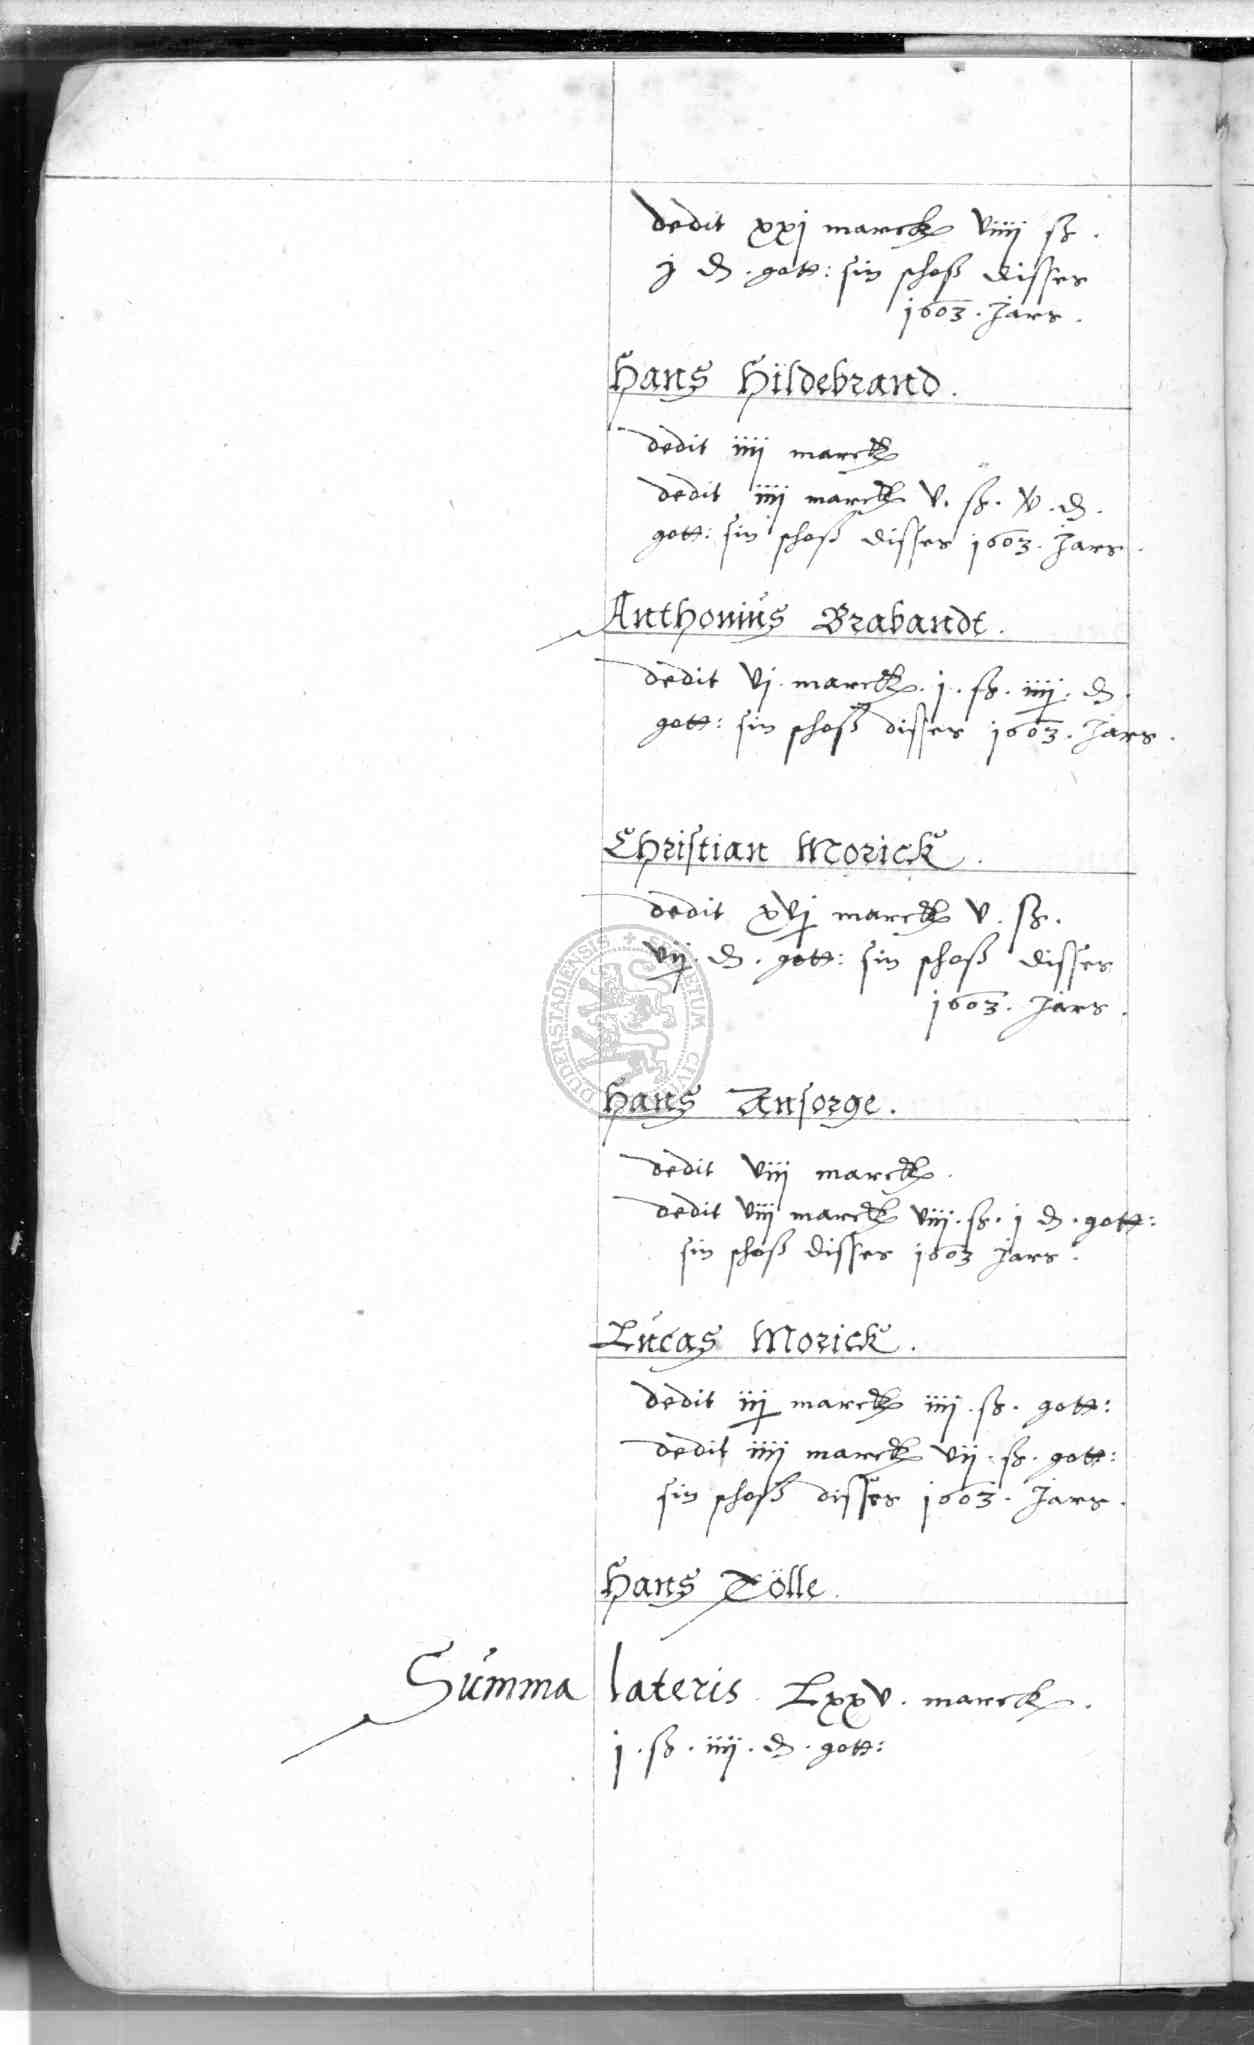 dedit xxj marck viiij ß.
j ₰. gott: sin schoß disses
1603. Jars.
Hans Hildebrand.
dedit iiij marck
dedit iiij marck v. ß. ₰.
gott: sin schoß disses 1603. Jars.
Anthonius Brabandt.
dedit vj. marck. j. ß. iiij. ₰.
gott: sin schoß disses 1603. Jars.
Christian Morick.
dedit xvj marck v. ß.
vij. ₰. gott: sin schoß disses
1603. Jars.
Hans Ansorge.
dedit viij marck.
dedit viij marck viij. ß. j ₰. gott:
sin schoß disses 1603 Jars.
Lucas Morick.
dedit iij marck iiij. ß. gott:
dedit iiij marck vij. ß. gott:
sin schoß disses 1603. Jars.
Hans Tölle.
Summa lateris Lxxv. marck.
j. ß. iiij. ₰. gott:
DUDERSTADIENSIS